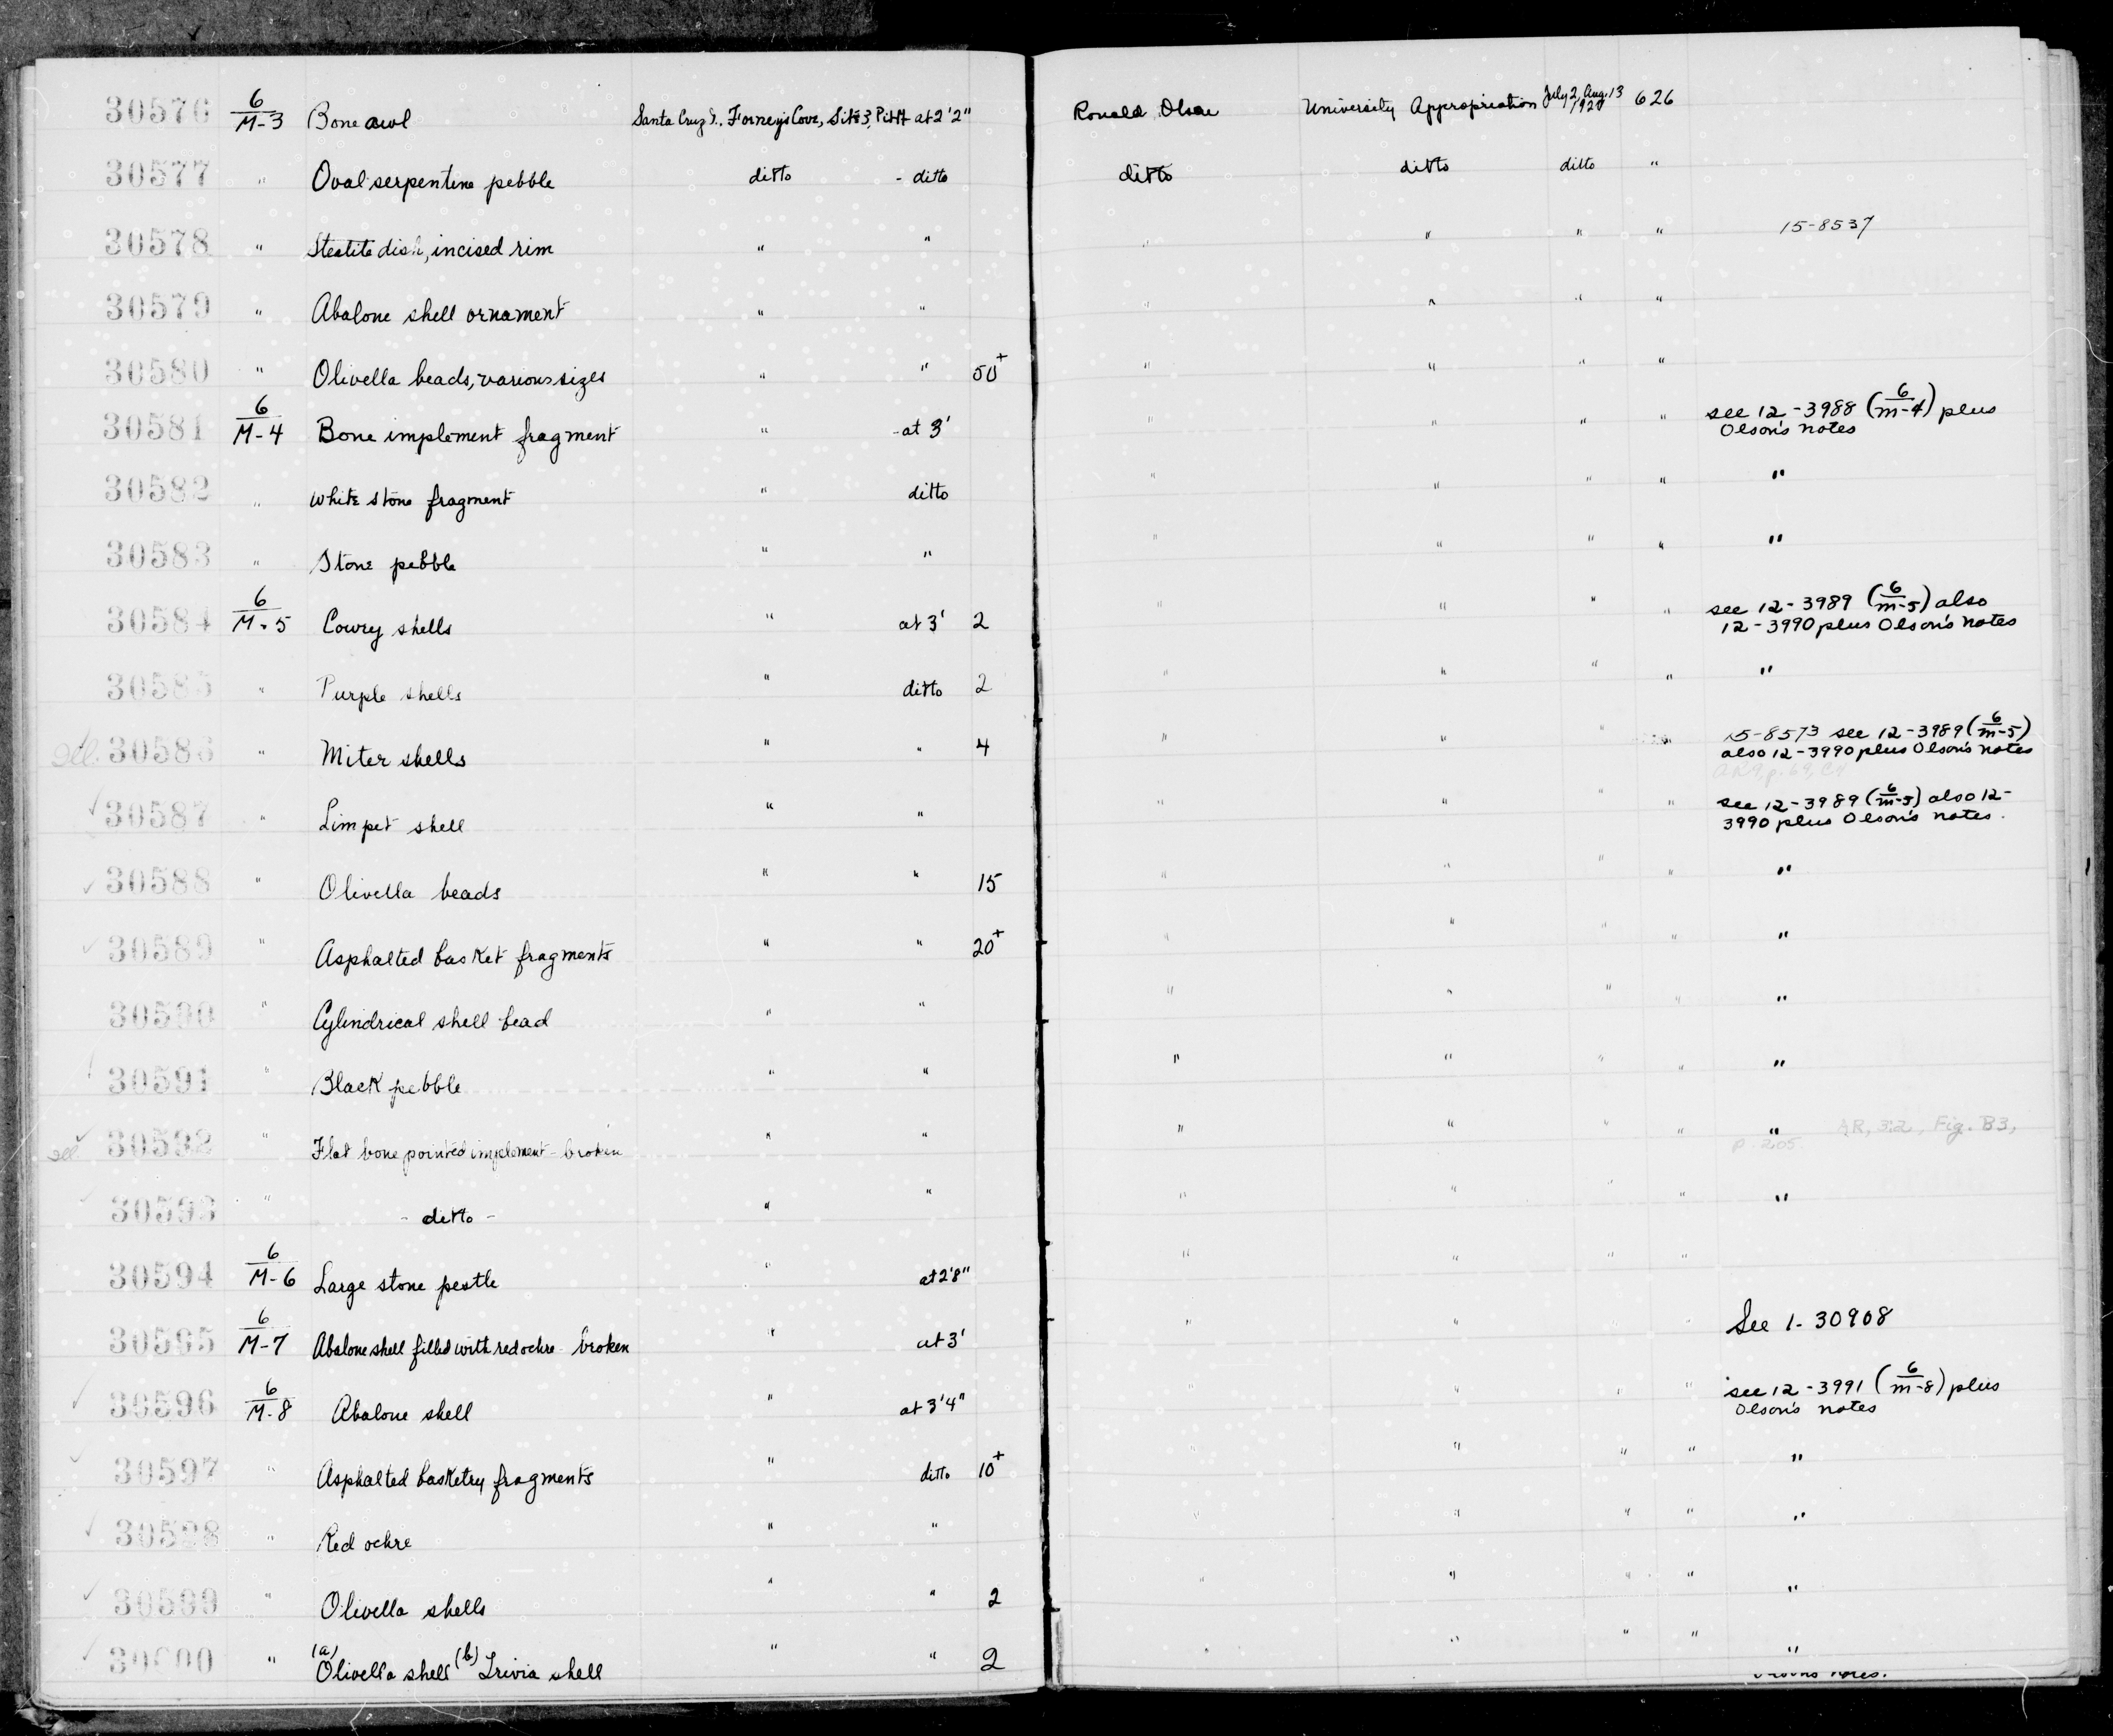 30576 6/M-3 Bone awl Santa Cruz I., Forney's Cove, Site 3, Pit at 2'2" Ronald Olson University Appropriation July 2, Aug. 13 626
30577 " Oval serpentine pebble ditto - ditto ditto ditto ditto "
30578 " Steatite dish, incised rim " " " " " " 15-8537
30579 " Abalone shell ornament " " " " " "
30580 " Olivella beads, various sizes " " 50+ " " " "
30581 6/M-4 Bone implement fragment " - at 3' " " " " see 12-3988 (6/m-4) plus
Olson's notes
30582 " White stone fragment " ditto " " " " "
30583 " Stone pebble " " " " " " "
30584 6/M-5 Cowry shells " at 3' 2 " " " " see 12-3989 (6/m-5) also
12-3990 plus Olson's notes
30585 " Purple shells " ditto 2 " " " " "
30586 " Miter shells " " 4 " " " " 15-8573 see 12-3989 (6/m-5)
also 12-3990 plus Olson's notes
30587 " Limpet shell " " " " " " see 12-3989 (6/m-5) also 12-
3990 plus Olson's notes.
30588 " Olivella beads " " 15 " " " " "
30589 " Asphalted basket fragments " " 20+ " " " " "
30590 " Cylindrical shell bead " " " " " " "
30591 " Black pebble " " " " " " "
30592 " Flat bone pointed implement - broken " " " " " " " AR, 32, Fig. B3,
p. 205
30593 " - ditto - " " " " " " "
30594 6/M-6 Large stone pestle " at 2'8" " " " "
30595 6/M-7 Abalone shell filled with red ochre - broken " at 3' " " " See 1-30908
30596 6/M-8 Abalone shell " at 3'4" " " " " see 12-3991 (6/m-8) plus
Olson's notes
30597 " Asphalted basketry fragments " ditto 10+ " " " " "
30598 " Red ochre " " " " " " "
30599 " Olivella shells " " 2 " " " " "
30600 " (a) Olivella shell (b) Trivia shell " " 2 " " " " "